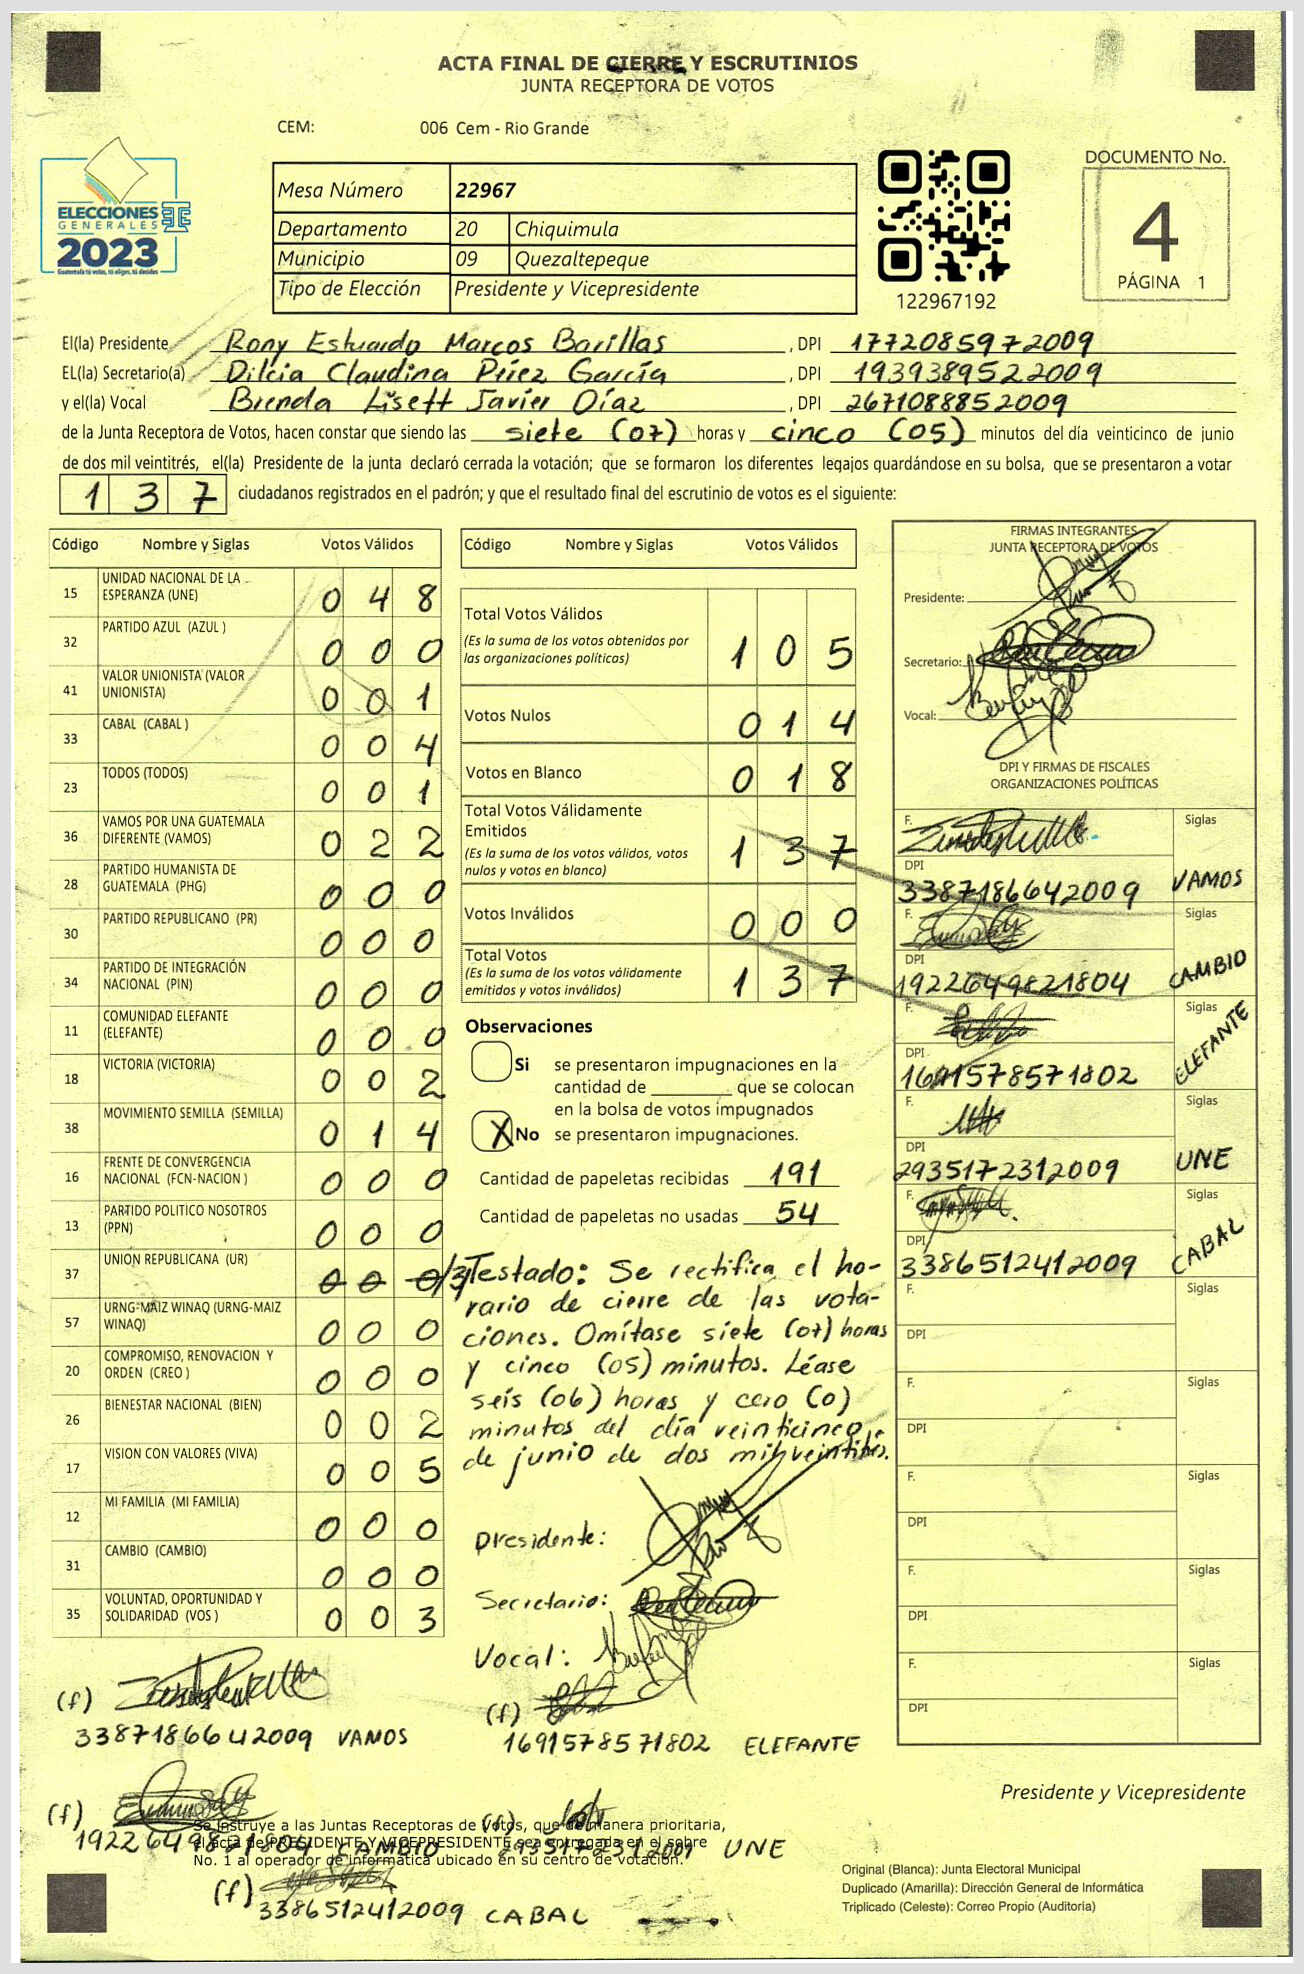 ACTA FINAL DE CIERRE Y ESCRUTINIOS
JUNTA RECEPTORA DE VOTOS
CEM: 006 Cem - Rio Grande
ELECCIONES
GENERALES
2023
Guatemala tú votas, tú eliges, tú decides
Mesa Número 22967
Departamento 20 Chiquimula
Municipio 09 Quezaltepeque
Tipo de Elección Presidente y Vicepresidente
122967192
DOCUMENTO No.
4
PÁGINA 1
El(la) Presidente Rony Estuardo Marcos Barillas, DPI 1772085972009
EL(la) Secretario(a) Dilcia Claudina Pérez García, DPI 1939389522009
y el(la) Vocal Brenda Lisett Javier Díaz, DPI 2671088852009
de la Junta Receptora de Votos, hacen constar que siendo las siete (07) horas y cinco (05) minutos del día veinticinco de junio
de dos mil veintitrés, el(la) Presidente de la junta declaró cerrada la votación; que se formaron los diferentes legajos guardándose en su bolsa, que se presentaron a votar
137 ciudadanos registrados en el padrón; y que el resultado final del escrutinio de votos es el siguiente:
Código Nombre y Siglas Votos Válidos
15 UNIDAD NACIONAL DE LA
ESPERANZA (UNE) 0 4 8
32 PARTIDO AZUL (AZUL ) 0 0 0
41 VALOR UNIONISTA (VALOR
UNIONISTA) 0 0 1
33 CABAL (CABAL ) 0 0 4
23 TODOS (TODOS) 0 0 1
36 VAMOS POR UNA GUATEMALA
DIFERENTE (VAMOS) 0 2 2
28 PARTIDO HUMANISTA DE
GUATEMALA (PHG) 0 0 0
30 PARTIDO REPUBLICANO (PR) 0 0 0
34 PARTIDO DE INTEGRACIÓN
NACIONAL (PIN) 0 0 0
11 COMUNIDAD ELEFANTE
(ELEFANTE) 0 0 0
18 VICTORIA (VICTORIA) 0 0 2
38 MOVIMIENTO SEMILLA (SEMILLA) 0 1 4
16 FRENTE DE CONVERGENCIA
NACIONAL (FCN-NACION ) 0 0 0
13 PARTIDO POLITICO NOSOTROS
(PPN) 0 0 0
37 UNION REPUBLICANA (UR) 0 0 0/3
57 URNG-MAIZ WINAQ (URNG-MAIZ
WINAQ) 0 0 0
20 COMPROMISO, RENOVACION Y
ORDEN (CREO ) 0 0 0
26 BIENESTAR NACIONAL (BIEN) 0 0 2
17 VISION CON VALORES (VIVA) 0 0 5
12 MI FAMILIA (MI FAMILIA) 0 0 0
31 CAMBIO (CAMBIO) 0 0 0
35 VOLUNTAD, OPORTUNIDAD Y
SOLIDARIDAD (VOS ) 0 0 3
Código Nombre y Siglas Votos Válidos
Total Votos Válidos
(Es la suma de los votos obtenidos por
las organizaciones políticas) 1 0 5
Votos Nulos 0 1 4
Votos en Blanco 0 1 8
Total Votos Válidamente
Emitidos
(Es la suma de los votos válidos, votos
nulos y votos en blanco) 1 3 7
Votos Inválidos 0 0 0
Total Votos
(Es la suma de los votos válidamente
emitidos y votos inválidos) 1 3 7
Observaciones
Si se presentaron impugnaciones en la
cantidad de ________ que se colocan
en la bolsa de votos impugnados
X No se presentaron impugnaciones.
Cantidad de papeletas recibidas 191
Cantidad de papeletas no usadas 54
Testado: Se rectifica el ho-
rario de cierre de las vota-
ciones. Omítase siete (07) horas
y cinco (05) minutos. Léase
seis (06) horas y cero (0)
minutos del día veinticinco
de junio de dos mil veintitrés.
Presidente:
Secretario:
Vocal:
FIRMAS INTEGRANTES
JUNTA RECEPTORA DE VOTOS
Presidente:
Secretario:
Vocal:
DPI Y FIRMAS DE FISCALES
ORGANIZACIONES POLÍTICAS
F. Siglas
DPI
3387186642009 VAMOS
F. Siglas
DPI
1922649821804 CAMBIO
F. Siglas
DPI
1691578571802 ELEFANTE
F. Siglas
DPI
2935172312009 UNE
F. Siglas
DPI
3386512412009 CABAL
F. Siglas
DPI
F. Siglas
DPI
F. Siglas
DPI
F. Siglas
DPI
F. Siglas
DPI
(f)
3387186642009 VAMOS
(f)
1691578571802 ELEFANTE
(f)
1922649821804 CAMBIO
(f)
2935172312009 UNE
(f)
3386512412009 CABAL
Se instruye a las Juntas Receptoras de Votos, que de manera prioritaria,
el acta de PRESIDENTE Y VICEPRESIDENTE sea entregada en el sobre
No. 1 al operador de informática ubicado en su centro de votación.
Presidente y Vicepresidente
Original (Blanca): Junta Electoral Municipal
Duplicado (Amarilla): Dirección General de Informática
Triplicado (Celeste): Correo Propio (Auditoría)